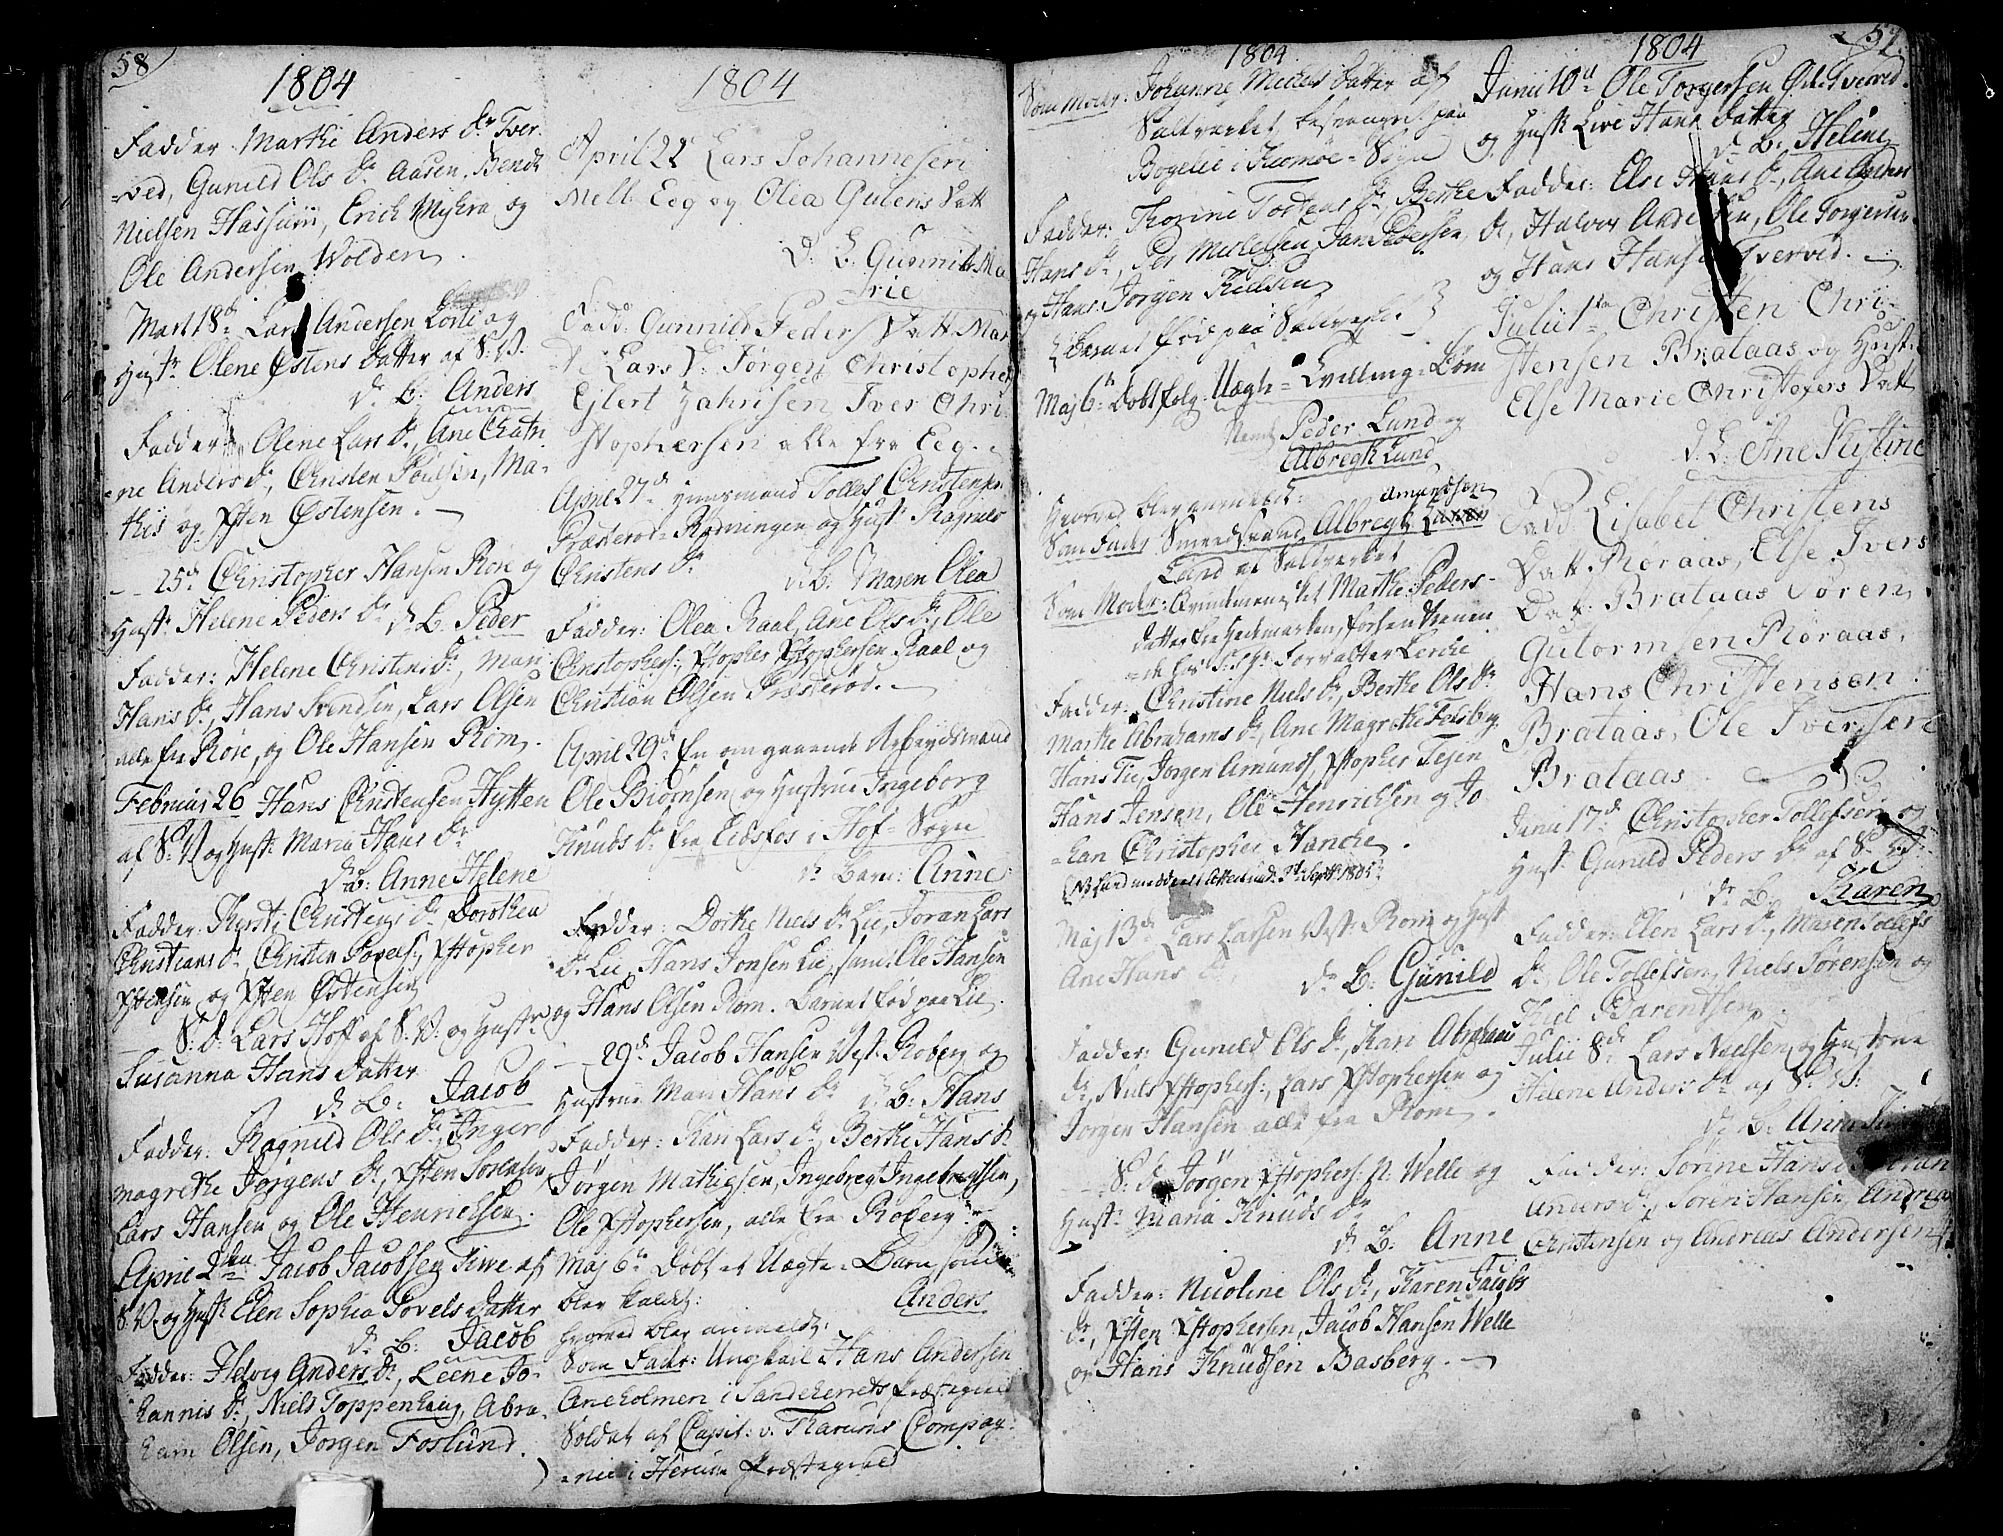 58
1804
Fadder: Marthe Anders Dr Tver-
-ved, Gunild Ols Dr Aasen, Bendt
Nielsen Hassum, Erich Myhra og
Ole Andersen Wolden.
Mart 18de Lars Andersen og
Hustr Olene Østens Datter af S: V.
Dr B: Anders
Fadder: Olene Lars Dr, Ane Cathri-
-ne Anders Dr, Christen Poulsen, Ma-
-this og Xsten Østensen.
- - 25de Christopher Hansen Röre og
Hustr Helene Peders Dr Dr B: Peder
Fadder: Helene Christens Dr, Mari
Hans Dr, Hans Svendsen, Lars Olsen
alle fra Röre, og Ole Hansen Rom.
Februar 26 Hans Christensen Hytten
af S: V. og Hust: Maria Hans Dr
Dr B: Anne Helene
Fadder: Kirsti Christens Dr, Dorothea
Christians Dr, Christen Povels:, Xstopher
Xstensen og Xsten Østensen
S: D: Lars Hoff af S: V: og Hustr
Susanna Hans Datter
Dr B: Jacob
Fadder: Ragnild Ols Dr, Inger
Magrethe Jørgens Dr, Xsten Sörensen
Lars Hansen og Ole Henrichsen.
April 2den Jacob Jacobsen af
S: V. og Hust: Elen Sophia Povels Datter
Dr B: Jacob
Fadder: Helvig Anders Dr, Leene Jo-
hannis Dr, Niels Toppenhaug, Abra-
ham Olsen, Jörgen Foslund.
1804
April 22de Lars Johannesen
Mell: Eeg og Olea Gulens Datt
D: B: Gunnild Ma
rie
Fadd: Gunnild Peders Datt Mar
Lars D: Jörgen Christopher
Ejlert Zakrisen Iver Chri
stophersen alle fra Eeg.
April 27de Huusmand Tolles Christensen
Præsterød-Rydningen og Hustr Ragnild
Christens Dr
Dr B: Maren Olea
Fadder: Olea Raal, Ane Ols Dr, Ole
Christophers:, Xstopher Xstophersen Raal og
Christian Olsen Præsterød.
April 29de En omgaaende Arbeydsmand
Ole Biörnsen og Hustrue Ingeborg
Knuds Dr fra Eidsfos i Hof-Sogn
Dr Barn: Anne
Fadder: Dorthe Niels Dr Lie, Joran Lars
Dr Lie, Hans Jonsen Lie, saml: Ole Hansen
og Hans Olsen Rom. Barnet fød paa Lie.
- - 29de Jacob Hansen Vest: Roberg og
Hustrue Mari Hans Dr Dr B: Hans
Fadder: Kari Lars Dr, Berthe Hans Dr
Jørgen Mathiesen, Ingebregt Ingebregtsen,
Ole Xstophersen, alle fra Roberg.
Maj 6te Døbt et Uægte-Barn, som
blev kaldt: Anders
Hvorved blev anmeldt:
Som Fader: Ungkarl Hans Andersen
Aneholmen i Sandeherrets Præstegield
Soldat af Capit: v: Tharums Compag-
-nie i Herum Præstegield
1804
Som Moder: Johanne Michels Datter af
Saltverket, besvangret paa
Bogelie i Kiømøe-Sogn
Fadder: Thorine Tostens Dr, Berthe
Hans Dr, Per Michelsen, Jan Pedersen
og Hans Jörgen Kielsen
(Barnet fød paa Saltverket)
Maj 6te Døbt følg: Uægte-Tvilling-Børn
Nemlig Peder Lund og
Albregt Lund
Hvorved blev anmeldt:
Amundsen
Som Fader Smeedsvend Albregt
Lund af Saltverket
Som Moder: Qvindemennesket Marthe Peders-
datter fra Hedemarken, forhen tienen
de hos Forvalter Lerche
Fadder: Christine Niels Dr, Berthe Ols Dr
Marthe Abrahams Dr, Ane Magrethe Felsberg,
Hans Tie, Jörgen Amunds, Xstopher Tejen
Hans Jensen, Ole Henrichsen og Jo-
-han Christopher Hanche.
Maj 13de Lars Larsen Vest: Rom og Hust
Ane Hans Dr
Dr B: Gunild
Fadder: Gunild Ols Dr, Kari Abraham
Dr, Niels Xstophers:, Lars Xstophersen og
Jörgen Hansen alle fra Rom.
S: D: Jørgen Xstophers: N: Welle og
Hustr Maria Knuds Dr
Dr B: Anne
Fadder: Nicoline Ols Dr, Karen Jacobs
Dr, Xsten Xstophersen, Jacob Hansen Welle
og Hans Knudsen Basberg.
1804
Junii 10de Ole Torgersen Øde Tverved
og Hustr Live Hans Datter
Dr B: Helene
Fadder: Else Hans Dr, Ane Anders
Dr, Halvor Andersen, Ole Torgersen
og Hans Hansen Tverved.
Julii 1ste Christen Chri-
stensen Brataas og Hust:
Else Marie Christofers Datt
D: B: Ane Kistine
Fadd Lisabet Christens
Datt Røraas, Else Ivers
Dat: Brataas Sören
Gutormsen Røraas,
Hans Christensen
Brataas, Ole Iversen
Brataas
Junii 17de Christopher Tollefsen og
Hustr Gunild Peders Dr af S: V:
Dr B: Karen
Fadder: Elen Lars Dr, Maren Tollefs
Dr, Ole Tollefsen, Niels Sörensen og
Kiel Barentsen
Julii 8de Lars Nielsen og Hustrue
Helene Anders Dr af S: V:
Dr B: Anne
Fadder: Sorine Hans
Anders Dr, Soren Hansen, Andreas
Christensen og Andreas Andersen